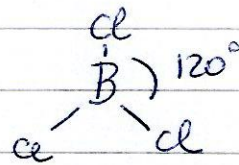 Cl
B 120°
Cl Cl